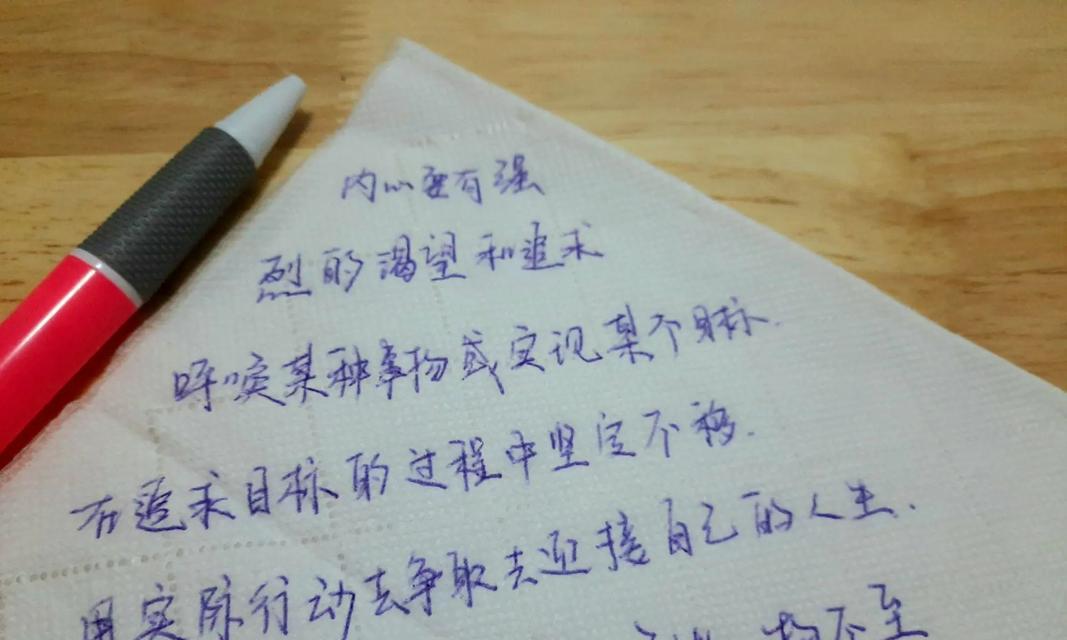 内心要有强
烈的渴望和追求
呼唤某种事物或实现某个目标.
在追求目标的过程中坚定不移.
用实际行动去争取去迎接自己的人生.
不至